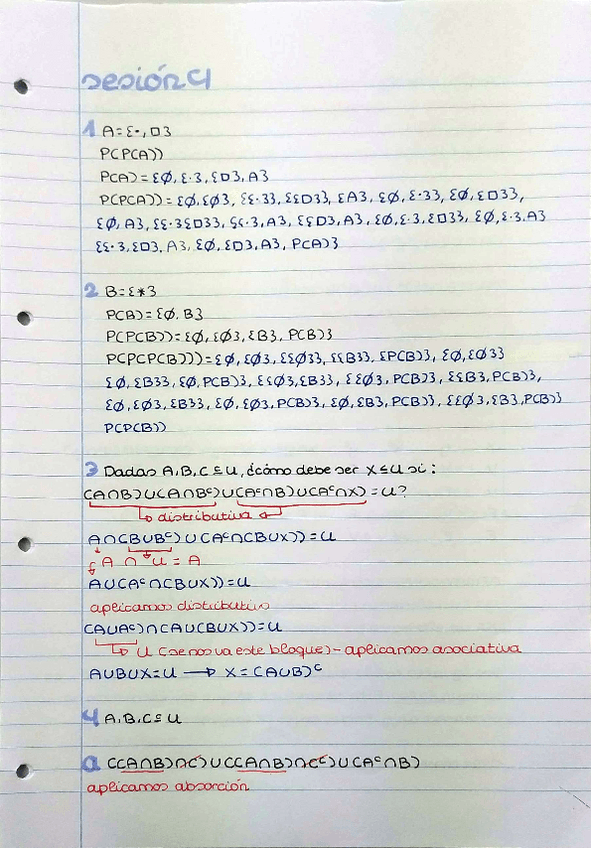 sesión 4
1 A={·,□}
P(P(A))
P(A)={Ø,{·},{□},A}
P(P(A))={Ø,{Ø},{{·}},{{□}},{A},{Ø,{·}},{Ø,{□}},
{Ø,A},{{·}{□}},{{·},A},{{□},A},{Ø,{·},{□}},{Ø,{·},A}
{{·},{□},A},{Ø,{□},A},P(A)}
2 B={*}
P(B)={Ø,B}
P(P(B))={Ø,{Ø},{B},P(B)}
P(P(P(B)))={Ø,{Ø},{{Ø}},{{B}},{P(B)},{Ø,{Ø}}
{Ø,{B}},{Ø,P(B)},{{Ø},{B}},{{Ø},P(B)},{{B},P(B)},
{Ø,{Ø},{B}},{Ø,{Ø},P(B)},{Ø,{B},P(B)},{{Ø},{B},P(B)}
P(P(B))
3 Dadas A,B,C⊆U,¿cómo debe ser X⊆U si:
(A∩B)∪(A∩Bᶜ)∪(Aᶜ∩B)∪(Aᶜ∩X)=U?
↳ distributiva ↲
A∩(B∪Bᶜ)∪(Aᶜ∩(B∪X))=U
A ∩ U = A
A∪(Aᶜ∩(B∪X))=U
aplicamos distributiva
(A∪Aᶜ)∩(A∪(B∪X))=U
↳ U (se nos va este bloque)-aplicamos asociativa
A∪B∪X=U → X=(A∪B)ᶜ
4 A,B,C⊆U
a ((A∩B)∩C)∪((A∩B)∩Cᶜ)∪(Aᶜ∩B)
aplicamos absorción